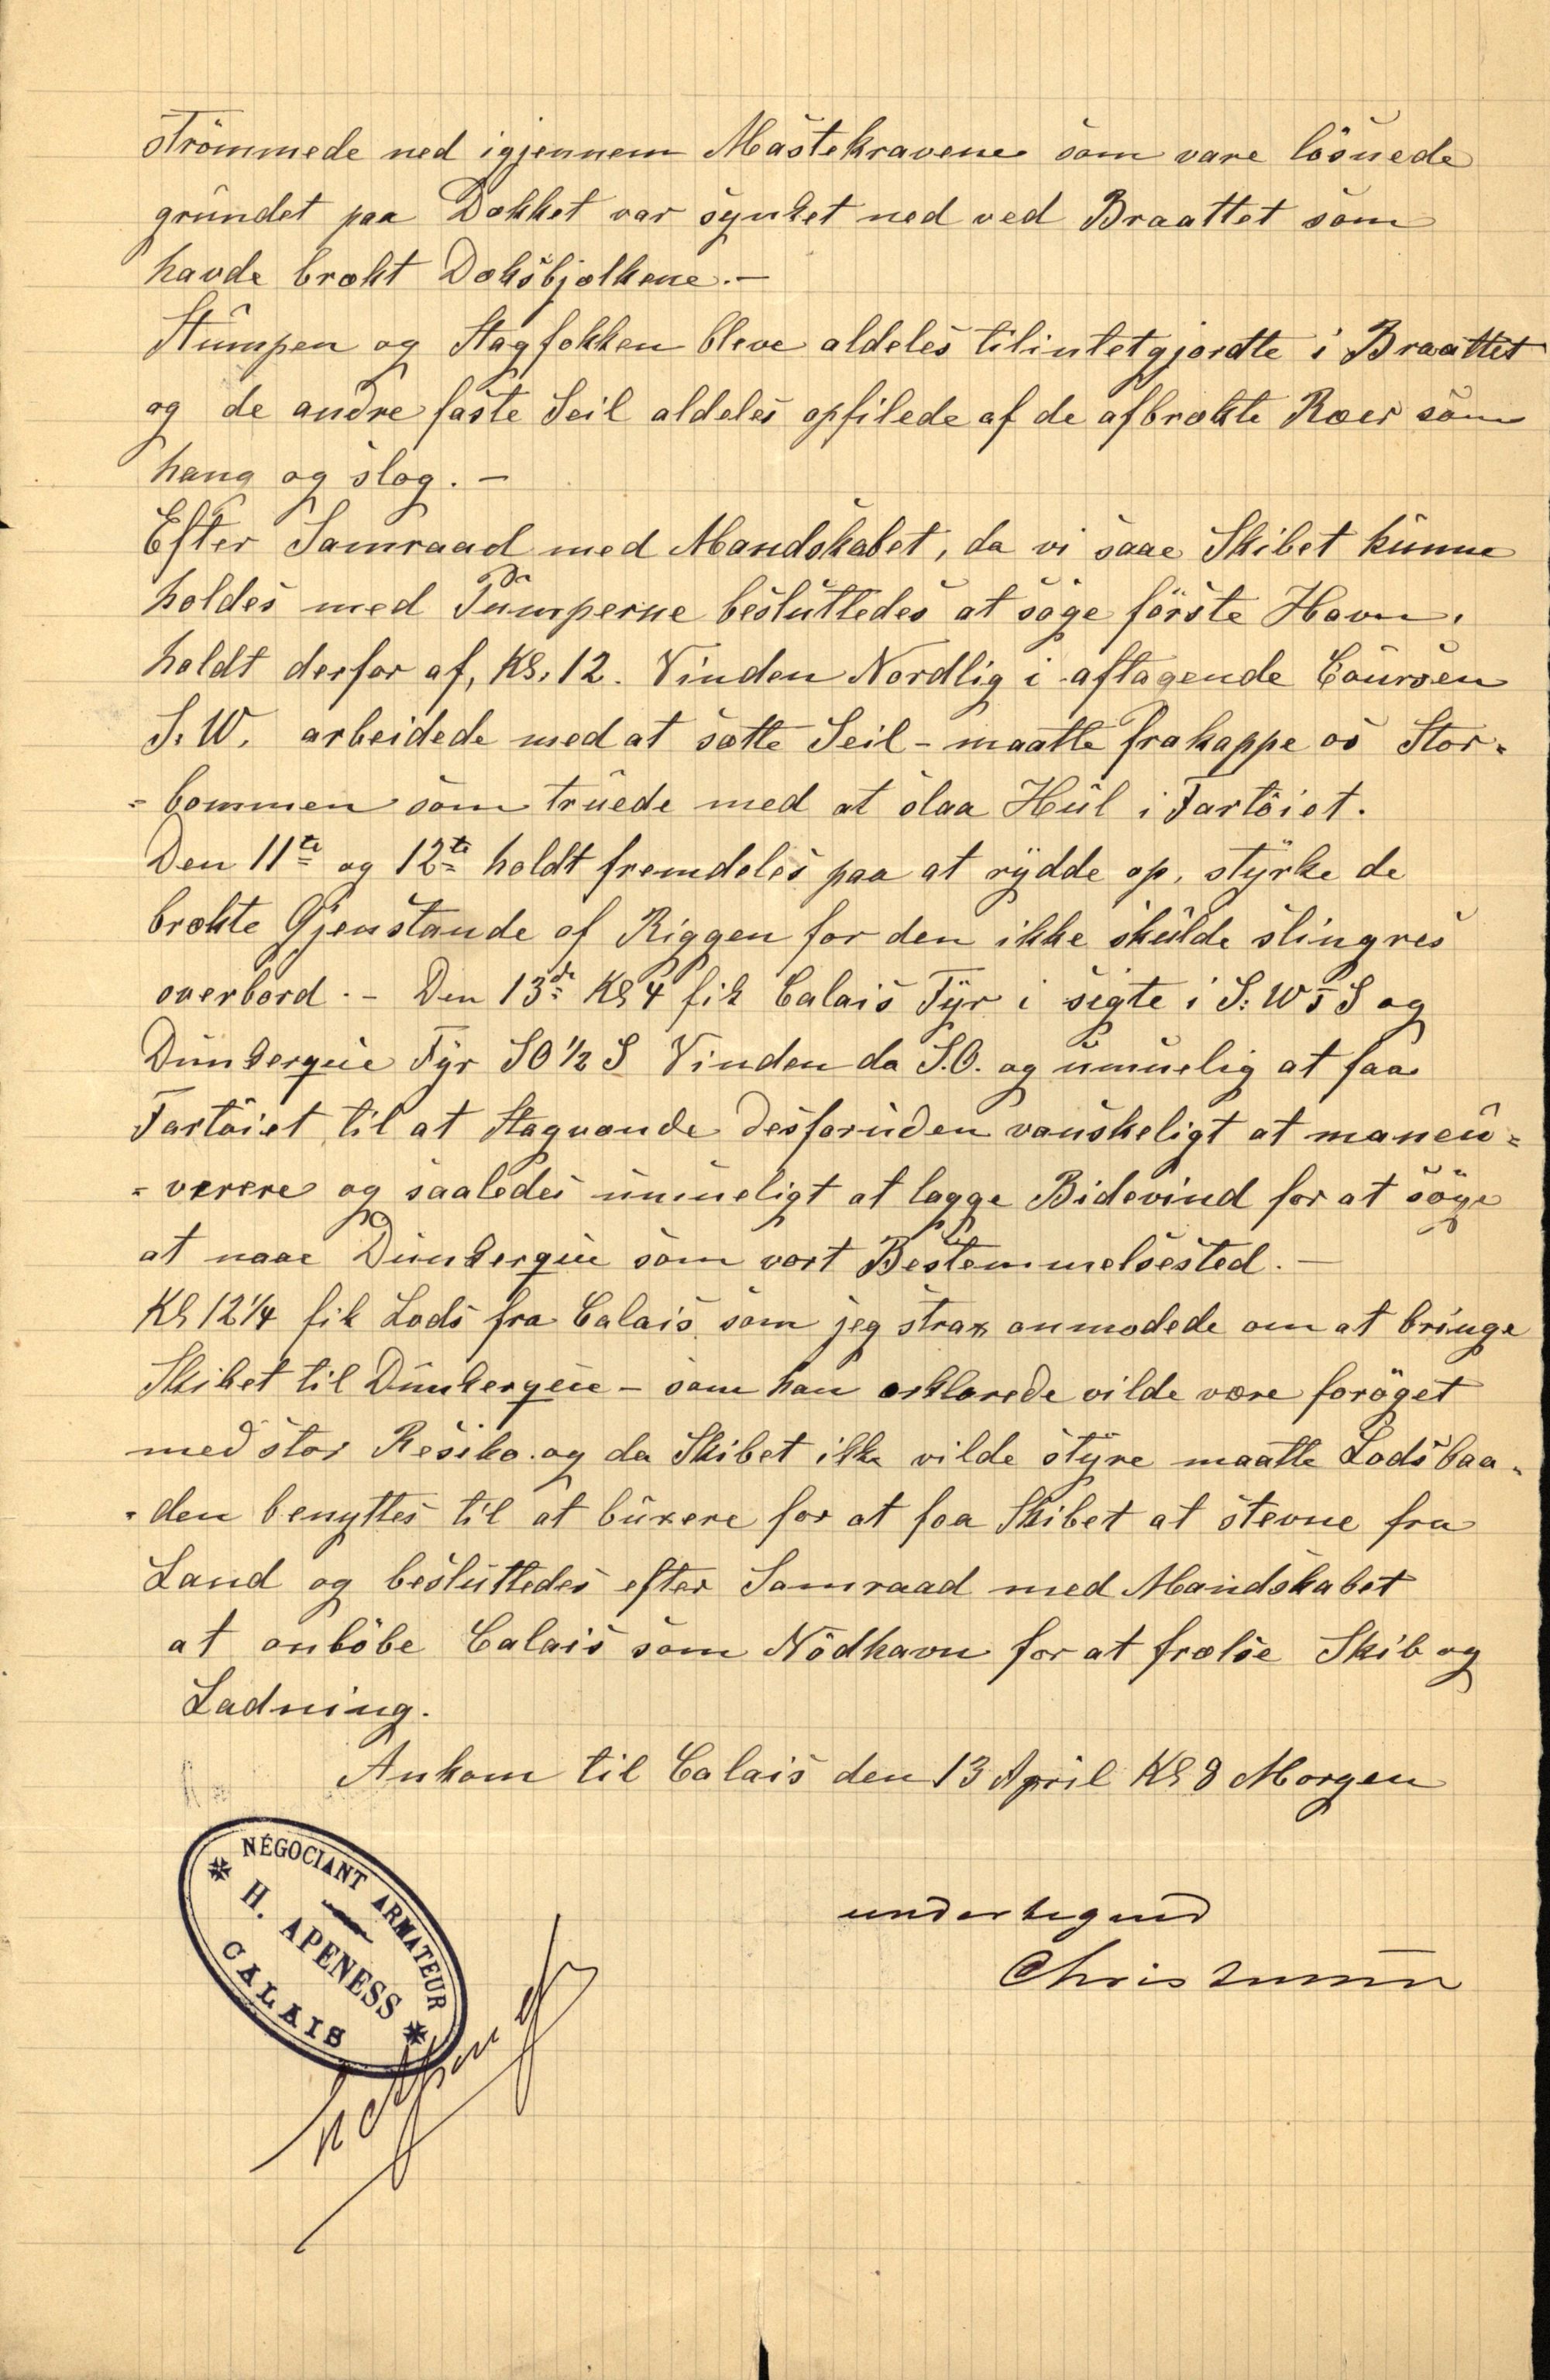 strömmede ned igjennem Mastekravene som vare lösnede
grundet paa Dækket var synket ned ved Braattet som
havde brækt Dæksbjælkene.-
Stumpen og Stagfokken bleve aldeles tilintetgjordte i Braattet
og de andre faste Seil aldeles opfilede af de afbrækte Ræer som
hang og slog.-
Efter Samraad med Mandskabet, da vi saae Skibet kunne
holdes med Pumperne besluttedes at söge förste Havn,
holdt derfor af, Kl. 12. Vinden Nordlig i aftagende Coursen
S.W. arbeidede med at sætte Seil - maatte frakappe os Stor=
=bommen som truede med at slaa Hul i Fartöiet.
Den 11te og 12te holdt fremdeles paa at rydde op, styrke de
brækte Gjenstande af Riggen for den ikke skulde slingres
overbord.- Den 13de Kl 4 fik Calais Fyr i sigte i S:WtS og
Dunkerque Fyr SO 1/2 S Vinden da S.O. og umuelig at faa
Fartöiet til at Stagvende desforuden vanskeligt at maneu=
=verere og saaledes umueligt at lægge Bidevind for at söge
at naae Dunkerque som vort Bestemmelsested.-
Kl 12 1/4 fik Lods fra Calais som jeg strax anmodede om at bringe
Skibet til Dunkerque - som han erklærede vilde være foröget
med stor Resiko. og da Skibet ikke vilde styre maatte Lodsbaa=
=den benyttes til at buxere for at faa Skibet at stevne fra
Land og besluttedes efter Samraad med Mandskabet
at anlöbe Calais som Nödhavn for at frælse Skib og
Ladning.
Ankom til Calais den 13 April Kl 8 Morgen
NÉGOCIANT ARMATEUR
H. APENESS
CALAIS
undertegned